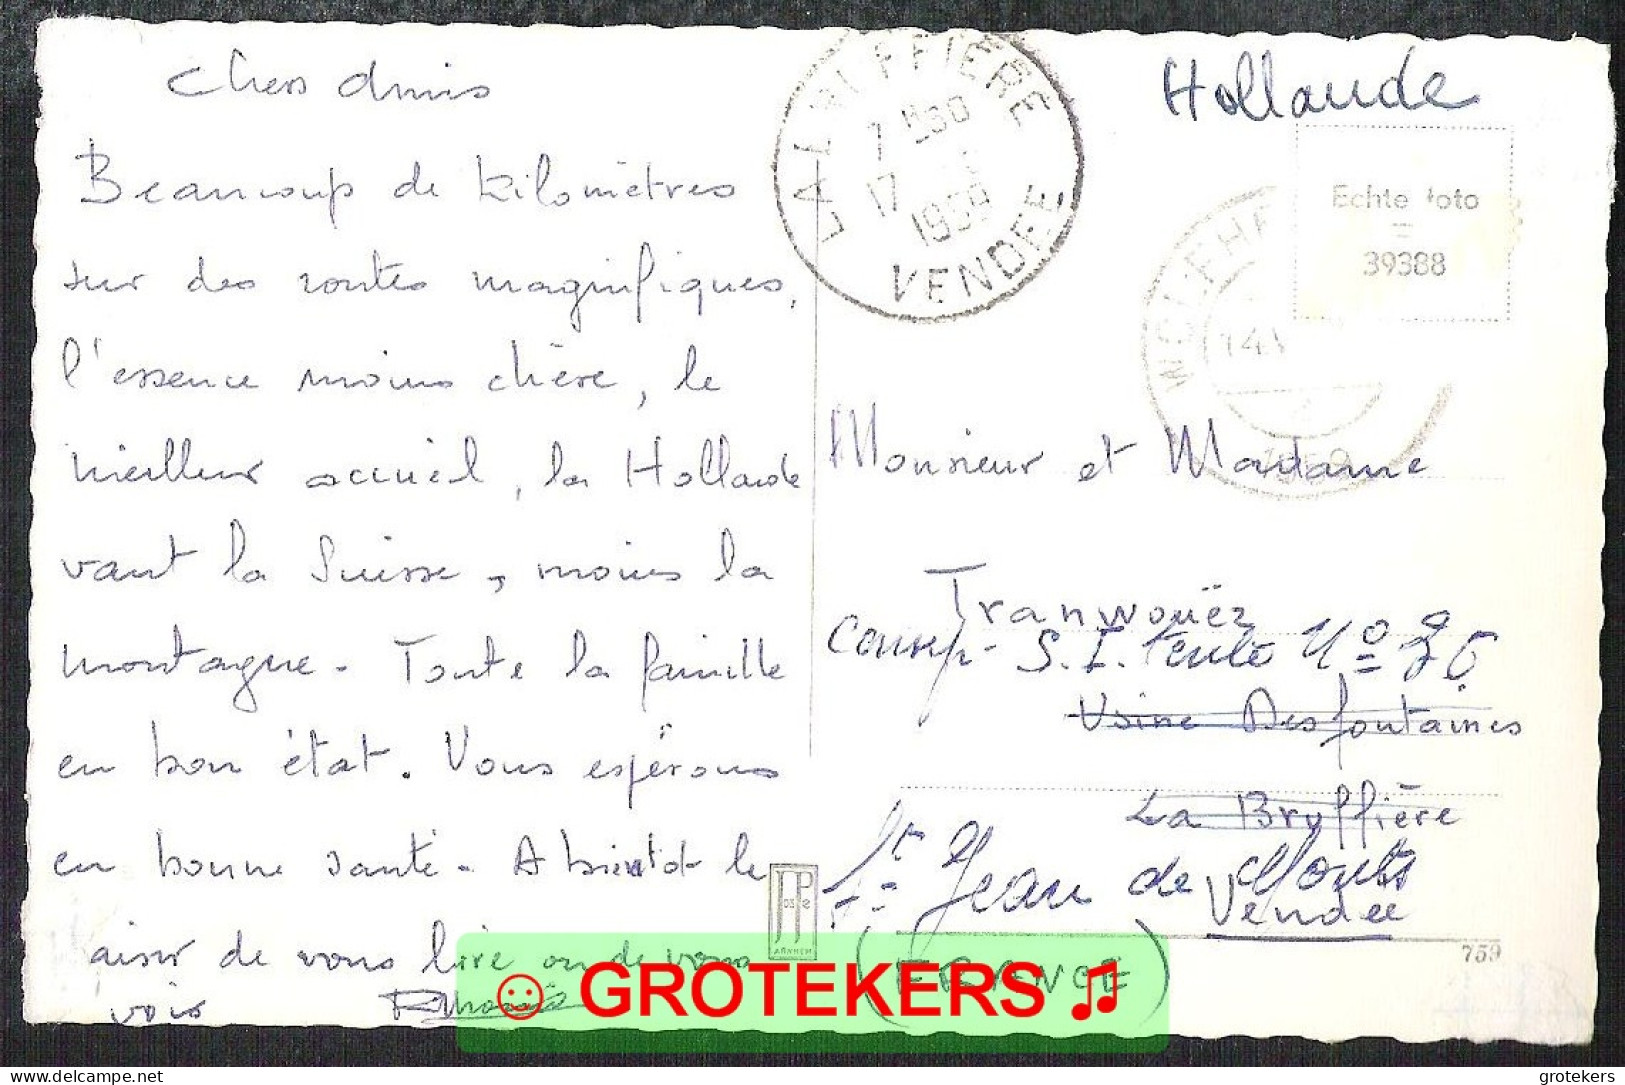 Chers Amis
Beaucoup de kilomètres
sur des routes magnifiques,
l'essence moins chère, le
meilleur accueil, la Hollande
vaut la Suisse, moins la
montagne. Toute la famille
en bon état. Vous espérons
en bonne santé. A bientôt le
aisir de vous lire ou de vous
voir
Hollande
LA BRUFFIERE
17
1959
VENDEE
Echte foto
=
39388
Monsieur et Madame
Tranwouëz
Camp- S.I. tente N°
Usine Desfontaines
La Bruffière
St Jean de Monts
Vendée
(FRANCE)
ARNHEM
759
GROTEKERS
delcampe.net
grotekers